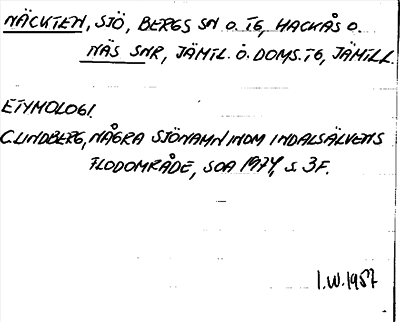 NÄCKTEN, SJÖ, BERGS SN O. TG, HACKÅS O.
NÄS SNR, JÄMTL. Ö. DOMS. TG, JÄMTLL.
ETYMOLOGI.
C. LINDBERG, NÅGRA SJÖNAMN INOM INDALSÄLVENS
FLODOMRÅDE, SOÅ 1974, S. 3F.
I.W. 1987